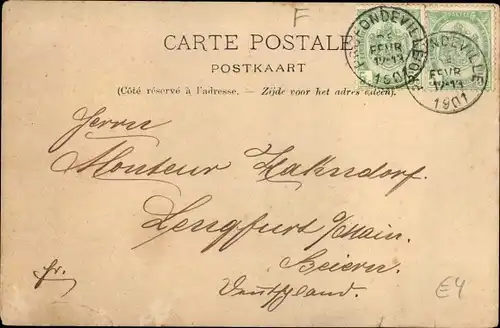 F
CARTE POSTALE
POSTKAART
(Côté réservé à l'adresse. — Zijde voor het adres alleen).
PROFONDEVILLE
FEVR
12-13
1901
PROFONDEVILLE
FEVR
12-13
1901
Herrn
Monteur Hahndorf.
Lengfurt a/Main.
Beiern.
fr.
Deutschland.
E4